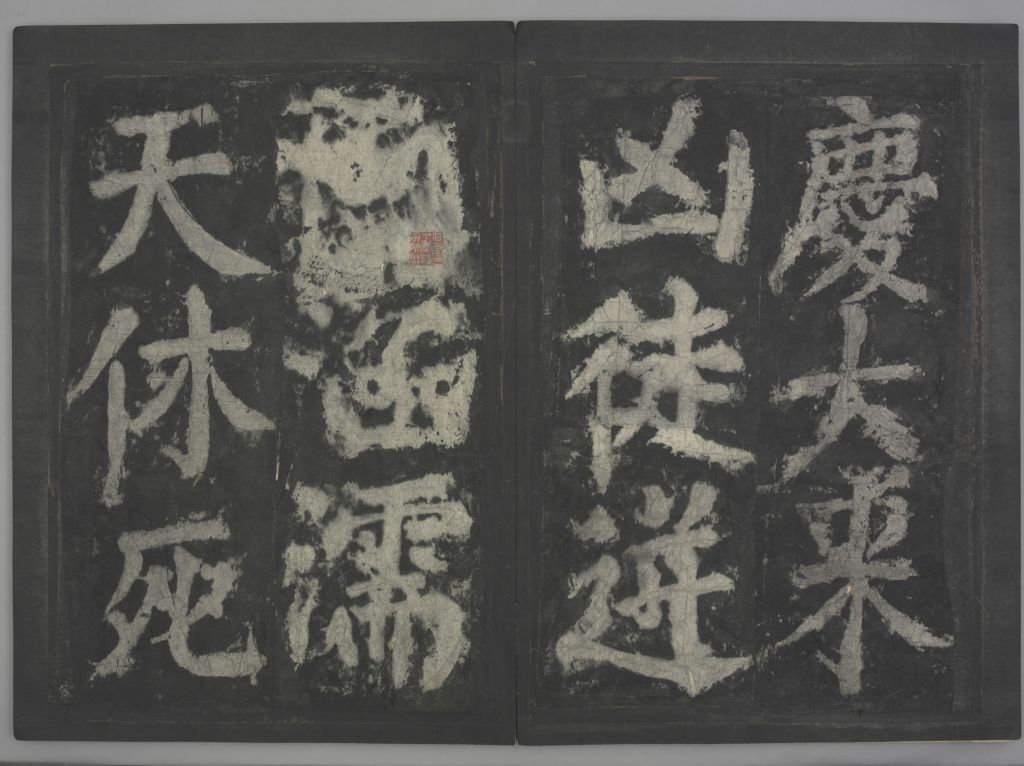 慶大来
凶徒逆
涵濡
天休死